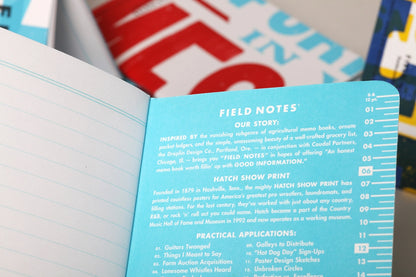 FIELD NOTES
OUR STORY:
INSPIRED BY the vanishing subgenre of agricultural memo books, ornate
pocket ledgers, and the simple, unassuming beauty of a well-crafted grocery list,
the Draplin Design Co., Portland, Ore. — in conjunction with Coudal Partners,
Chicago, Ill. — brings you "FIELD NOTES" in hopes of offering "An honest
memo book worth fillin' up with GOOD INFORMATION."
HATCH SHOW PRINT
Founded in 1879 in Nashville, Tenn., the mighty HATCH SHOW PRINT has
printed countless posters for America's greatest pro wrestlers, laundromats, and
filling stations. For the last century, they've worked with just about any country,
R&B, or rock 'n' roll act you could name. Hatch became a part of the Country
Music Hall of Fame and Museum in 1992 and now operates as a working museum.
PRACTICAL APPLICATIONS:
01. Guitars Twanged
02. Things I Meant to Say
03. Farm Auction Acquisitions
04. Lonesome Whistles Heard
09. Galleys to Distribute
10. "Hot Dog Day" Sign-Ups
11. Poster Design Sketches
12. Unbroken Circles
06
12